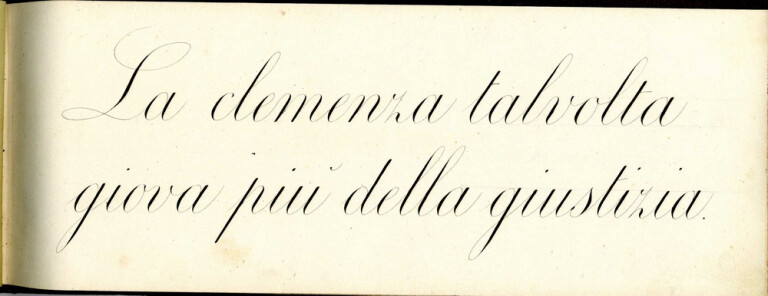 La clemenza talvolta
giova più della giustizia.